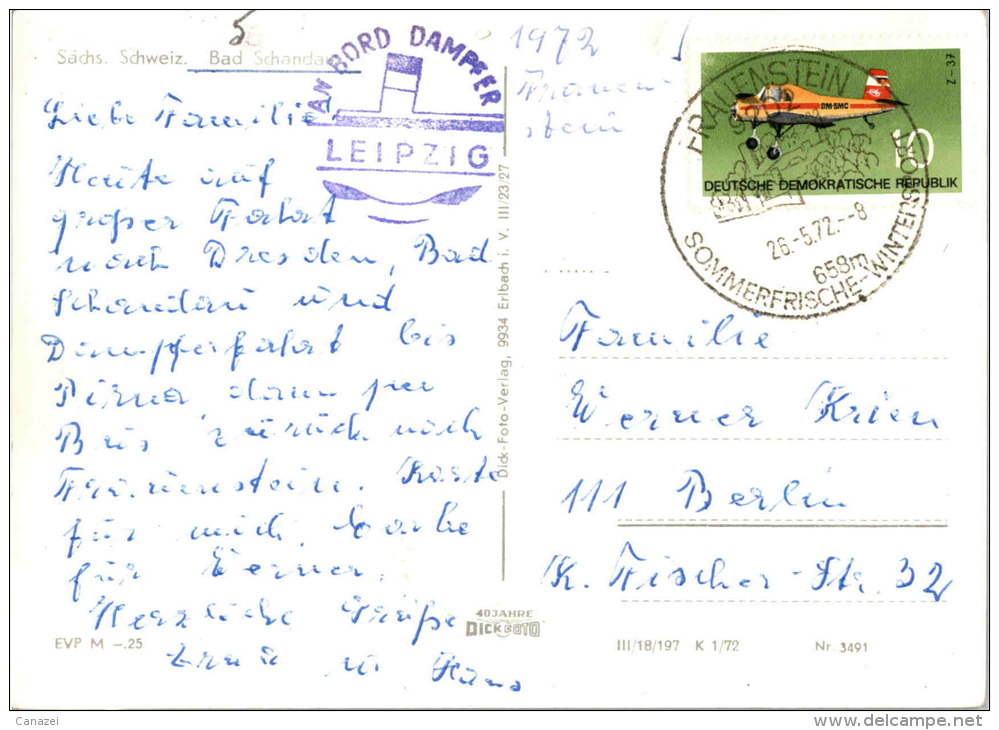 Sächs. Schweiz. Bad Schandau
AN BORD DAMPFER
LEIPZIG
1972
Frauen-
stein
FRAUENSTEIN
9202
SOMMERFRISCHE-WINTERSPORT
658m
26.-5.72.--8
Z-37
DM-SMC
10
DEUTSCHE DEMOKRATISCHE REPUBLIK
Liebe Familie!
Heute auf
großer Fahrt
nach Dresden, Bad
Schandau und
Dampferfahrt bis
Pirna, dann per
Bus zurück nach
Frauenstein. Karte
für mich, Marke
für Werner.
Herzliche Grüße
u. Hans
Dick-Foto-Verlag, 9934 Erlbach i. V. III/23/27
Familie
Werner Krien
111 Berlin
K. Fischer-Str. 32
40 JAHRE
DICK FOTO
EVP M -.25
III/18/197 K 1/72
Nr. 3491
Canazei
delcampe.net